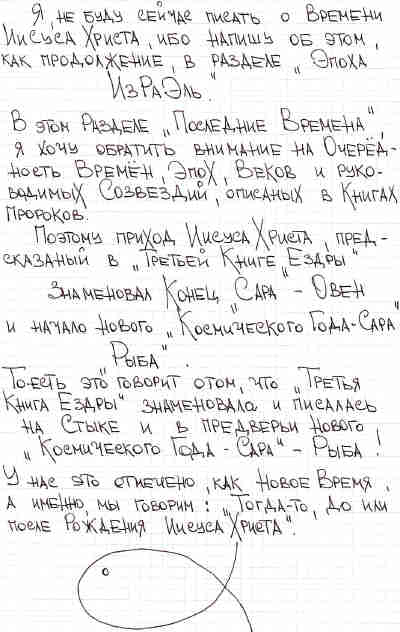 Я, не буду сейчас писать о Времени
Иисуса Христа, ибо напишу об этом,
как продолжение, в разделе „Эпоха
ИзРаЭль".
В этом Разделе „Последние Времена",
я хочу обратить внимание на Очерёд-
ность Времён, Эпох, Веков и руко-
водимых Созвездий, описаных в Книгах
Пророков.
Поэтому приход Иисуса Христа, пред-
сказаный в „Третьей Книге Ездры"
знаменовал Конец „Сара" - Овен
и начало нового „Космического Года-Сара"
„Рыба".
То-есть это говорит о том, что „Третья
Книга Ездры" знаменовала и писалась
на Стыке и в предверьи нового
„Космического Года - Сара" - Рыба!
У нас это отмечено, как Новое Время,
а именно, мы говорим: „Тогда-то, до или
после Рождения Иисуса Христа".